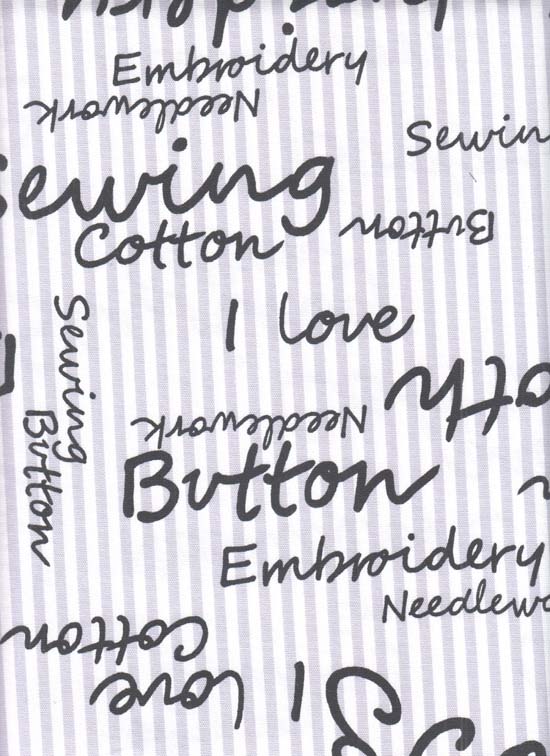 Embroidery
Needlework
Sewin
Sewing
Cotton
Button
I love
Sewing
Needlework
Button
Button
Embroidery
Needlewo
Cotton
I love